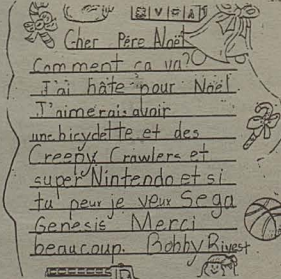 Cher Père Noël
Comment ça va?
J'ai hâte pour Noël.
J'aimerais avoir
une bicyclette et des
Creepy Crawlers et
super Nintendo et si
tu peux je veux Sega
Genesis Merci
beaucoup. Bobby Rivest